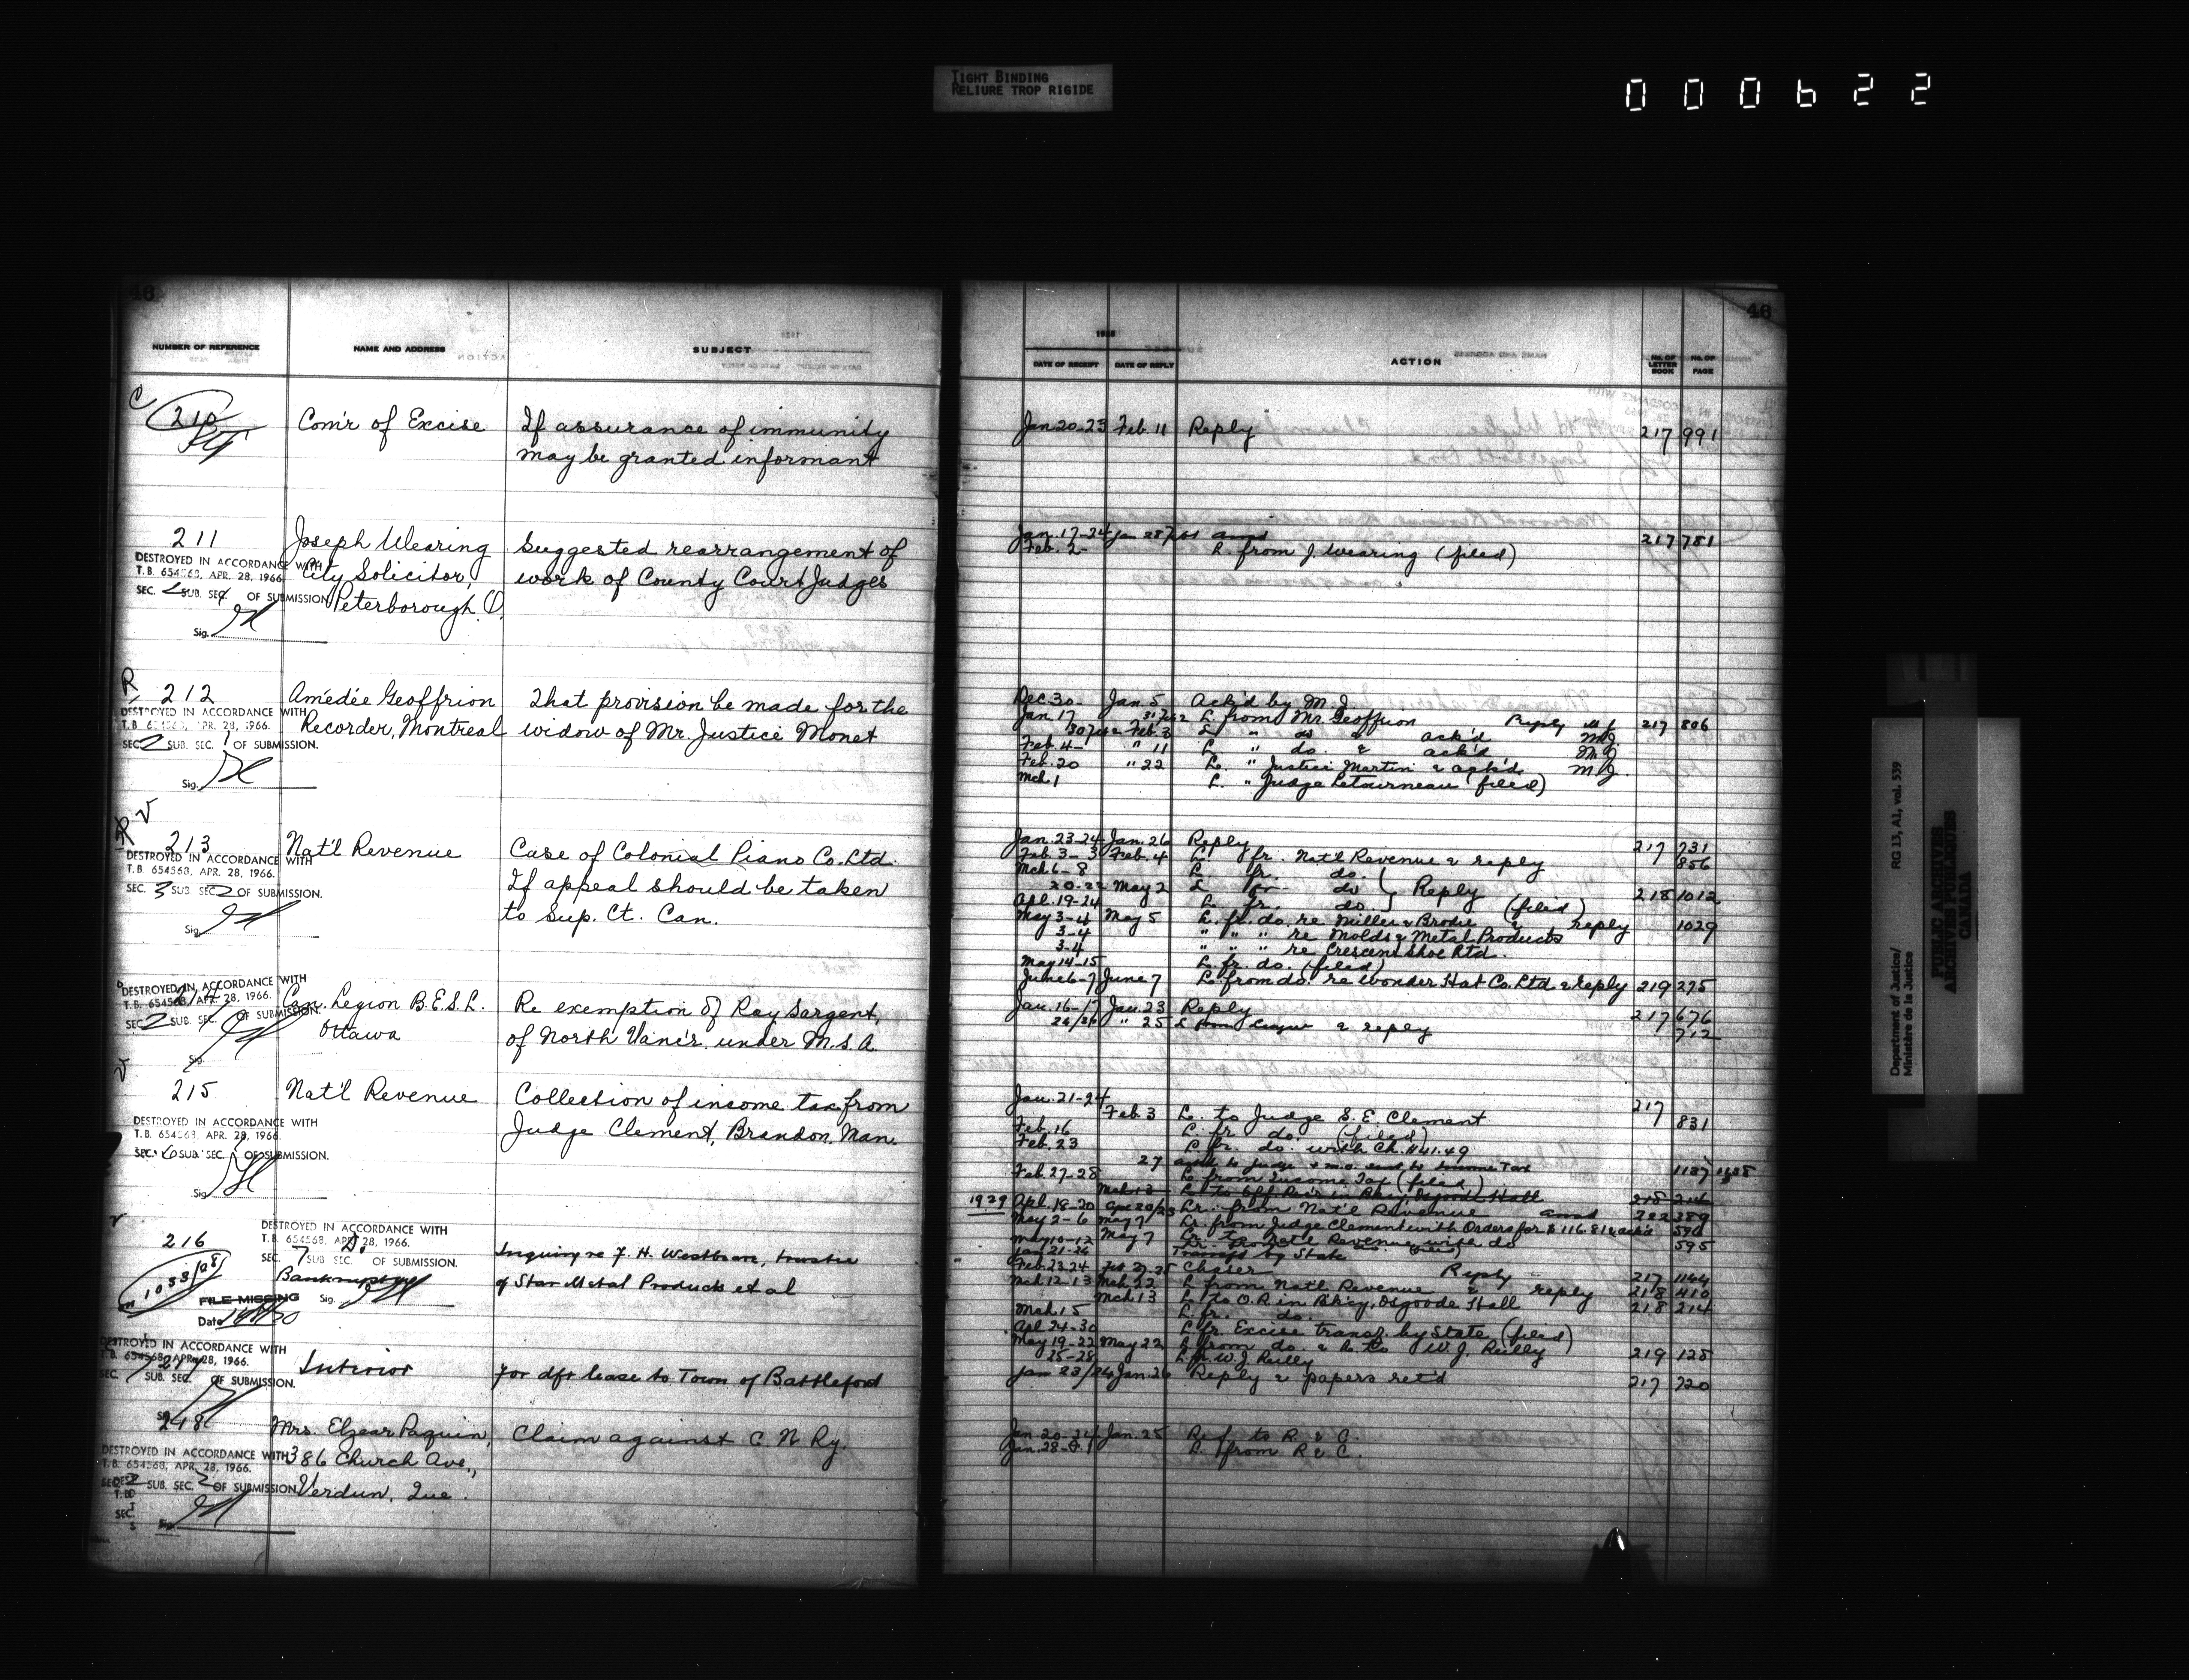 TIGHT BINDING
RELIURE TROP RIGIDE
000622
46
NUMBER OF REFERENCE NAME AND ADDRESS SUBJECT
C 210 Com'r of Excise If assurance of immunity
may be granted informant
211 Joseph Wearing Suggested rearrangement of
DESTROYED IN ACCORDANCE WITH City Solicitor, work of County Court Judges
T.B. 654568, APR. 28, 1966.
SEC. SUB. SEC. OF SUBMISSION Peterborough O.
Sig.
R 212 Amédée Geoffrion That provision be made for the
DESTROYED IN ACCORDANCE WITH Recorder, Montreal widow of Mr. Justice Monet
T.B. 654568, APR. 28, 1966.
SEC. 2 SUB. SEC. 1 OF SUBMISSION.
Sig.
V
213 Nat'l Revenue Case of Colonial Piano Co. Ltd.
DESTROYED IN ACCORDANCE WITH If appeal should be taken
T.B. 654568, APR. 28, 1966.
SEC. 3 SUB. SEC. 2 OF SUBMISSION. to Sup. Ct. Can.
Sig.
DESTROYED IN ACCORDANCE WITH
T.B. 654568, APR. 28, 1966. Can. Legion B.E.S.L. Re exemption of Ray Sargent,
SEC. 2 SUB. SEC. OF SUBMISSION. Ottawa of North Vanc'r. under M.S.A.
Sig.
V
215 Nat'l Revenue Collection of income tax from
DESTROYED IN ACCORDANCE WITH Judge Clement, Brandon, Man.
T.B. 654568, APR. 28, 1966.
SEC. SUB. SEC. OF SUBMISSION.
Sig.
216 DESTROYED IN ACCORDANCE WITH
T.B. 654568, APR. 28, 1966.
SEC. 7 SUB SEC. OF SUBMISSION. Inquiry re F. H. Westbare, trustee
Bankruptcy of Star Metal Products et al
FILE MISSING Sig.
Date
DESTROYED IN ACCORDANCE WITH
T.B. 654568, APR. 28, 1966.
217 Interior For dft lease to Town of Battleford
SEC. SUB. SEC. OF SUBMISSION.
218 Mrs. Elzear Paquin, Claim against C. N. Ry.
DESTROYED IN ACCORDANCE WITH 386 Church Ave.,
T.B. 654568, APR. 28, 1966.
SEC. 2 SUB. SEC. 2 OF SUBMISSION Verdun, Que.
Sig.
46
DATE OF RECEIPT DATE OF REPLY ACTION No. OF LETTER BOOK No. OF PAGE
Jan 20-23 Feb. 11 Reply 217 991
Jan. 17-24 Jan 28 217 781
Feb. 2- L. from J. Wearing (filed)
Dec. 30- Jan. 5 Ack'd by M.J.
Jan 17 L. from Mr. Geoffrion Reply M.J. 217 806
Feb. 3 L " do & ack'd M.J.
Feb. 4- " 11 L. " do. & ack'd M.J.
Feb. 20 " 22 L. " Justice Martin & ack'd M.J.
Mch. 1 L. " Judge Letourneau (filed)
Jan. 23-24 Jan. 26 Reply 217 731
Feb. 3-3 Feb. 4 L. fr. Nat'l Revenue & reply 856
Mch 6-8 L. fr. do.
20-22 May 2 L fr do Reply 218 1012
Apl. 19-24 L. fr. do. (filed)
May 3-4 May 5 L. fr. do. re Miller & Brodie & reply 1029
3-4 " " " re Molds & Metal Products
3-4 " " " re Crescent Shoe Ltd.
May 14-15 L. fr. do. (filed)
June 6-7 June 7 L. from do. re Wonder Hat Co. Ltd & reply 219 275
Jan. 16-17 Jan. 23 Reply 217 676
" 25 L from & reply 712
Jan. 21-24 217
Feb. 3 L. to Judge S. E. Clement 831
Feb. 16 L. fr. do. (filed)
Feb. 23 L. fr. do. with Ch. $41.49
27 1187
Feb. 27-28 L. from Income Tax (filed)
Mch 13 L. to Off. Rec'r in Bk'cy, Osgoode Hall 218 214
1929 Apl. 18-20 Lr. from Nat'l Revenue 222 389
May 2-6 May 7 Lr. from Judge Clement with Orders for $116.81 & ack'd 596
May 10-12 May 7 Lr. to Nat'l Revenue with do 595
Jan 21-26 Transf by State
Feb. 23-24 Chaser Reply 217 1144
Mch 12-13 Mch. 22 L from Nat'l Revenue & reply 218 410
Mch 13 L. to O.R. in Bk'cy, Osgoode Hall 218 214
Mch. 15 L. fr. do.
Apl 24-30 L fr. Excise transf. by State (filed)
May 19-22 May 22 L from do. & L. to W. J. Reilly 219 128
25-28 L. fr. W. J. Reilly
Jan 23/24 Jan. 26 Reply & papers ret'd 217 720
Jan. 20-24 Jan. 25 Ref. to R. & C.
Jan. 28- L. from R & C.
Department of Justice/ RG 13, A1, vol. 539
Ministère de la Justice
PUBLIC ARCHIVES
ARCHIVES PUBLIQUES
CANADA